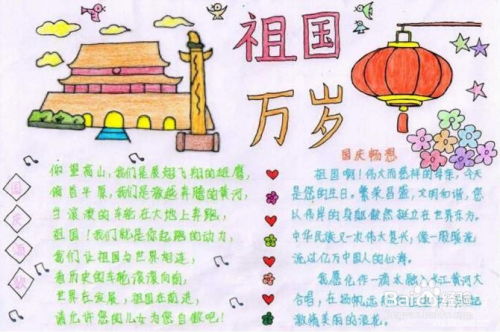 祖国
万岁
国庆畅想
你望高山，我们是展翅飞翔的雄鹰，
俯首平原，我们是激越奔腾的黄河，
当滚滚的车轮在大地上奔跑，
祖国！我们就是你起跑的动力，
我们让祖国与世界相连，
看历史的车轮滚滚向前，
世界在发展，祖国在前进，
请允许您的儿女为您自傲吧！
祖国啊！伟大而慈祥的母亲，今天
是您的生日。繁荣昌盛，文明和谐，您
以伟岸的身躯傲然挺立在世界东方。
中华民族又一次伟大复兴，像一股暖流
流过亿万中国人的心海。
我愿化作一滴水融入长江黄河大
合唱，在扬帆远
激扬美丽的浪花。
国
庆
颂
歌
Baidu